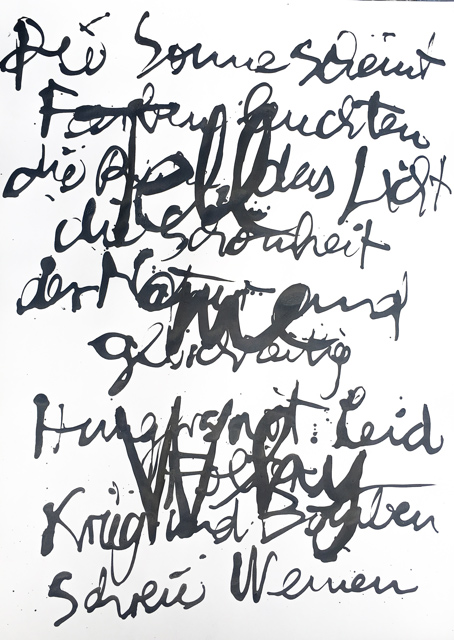 Die Sonne scheint
Farben leuchten
die das Licht
die Schönheit
der Natur und
gleichzeitig
Hungersnot. Leid
Krieg und Bomben
Schreie Weinen
Tell
me
Why